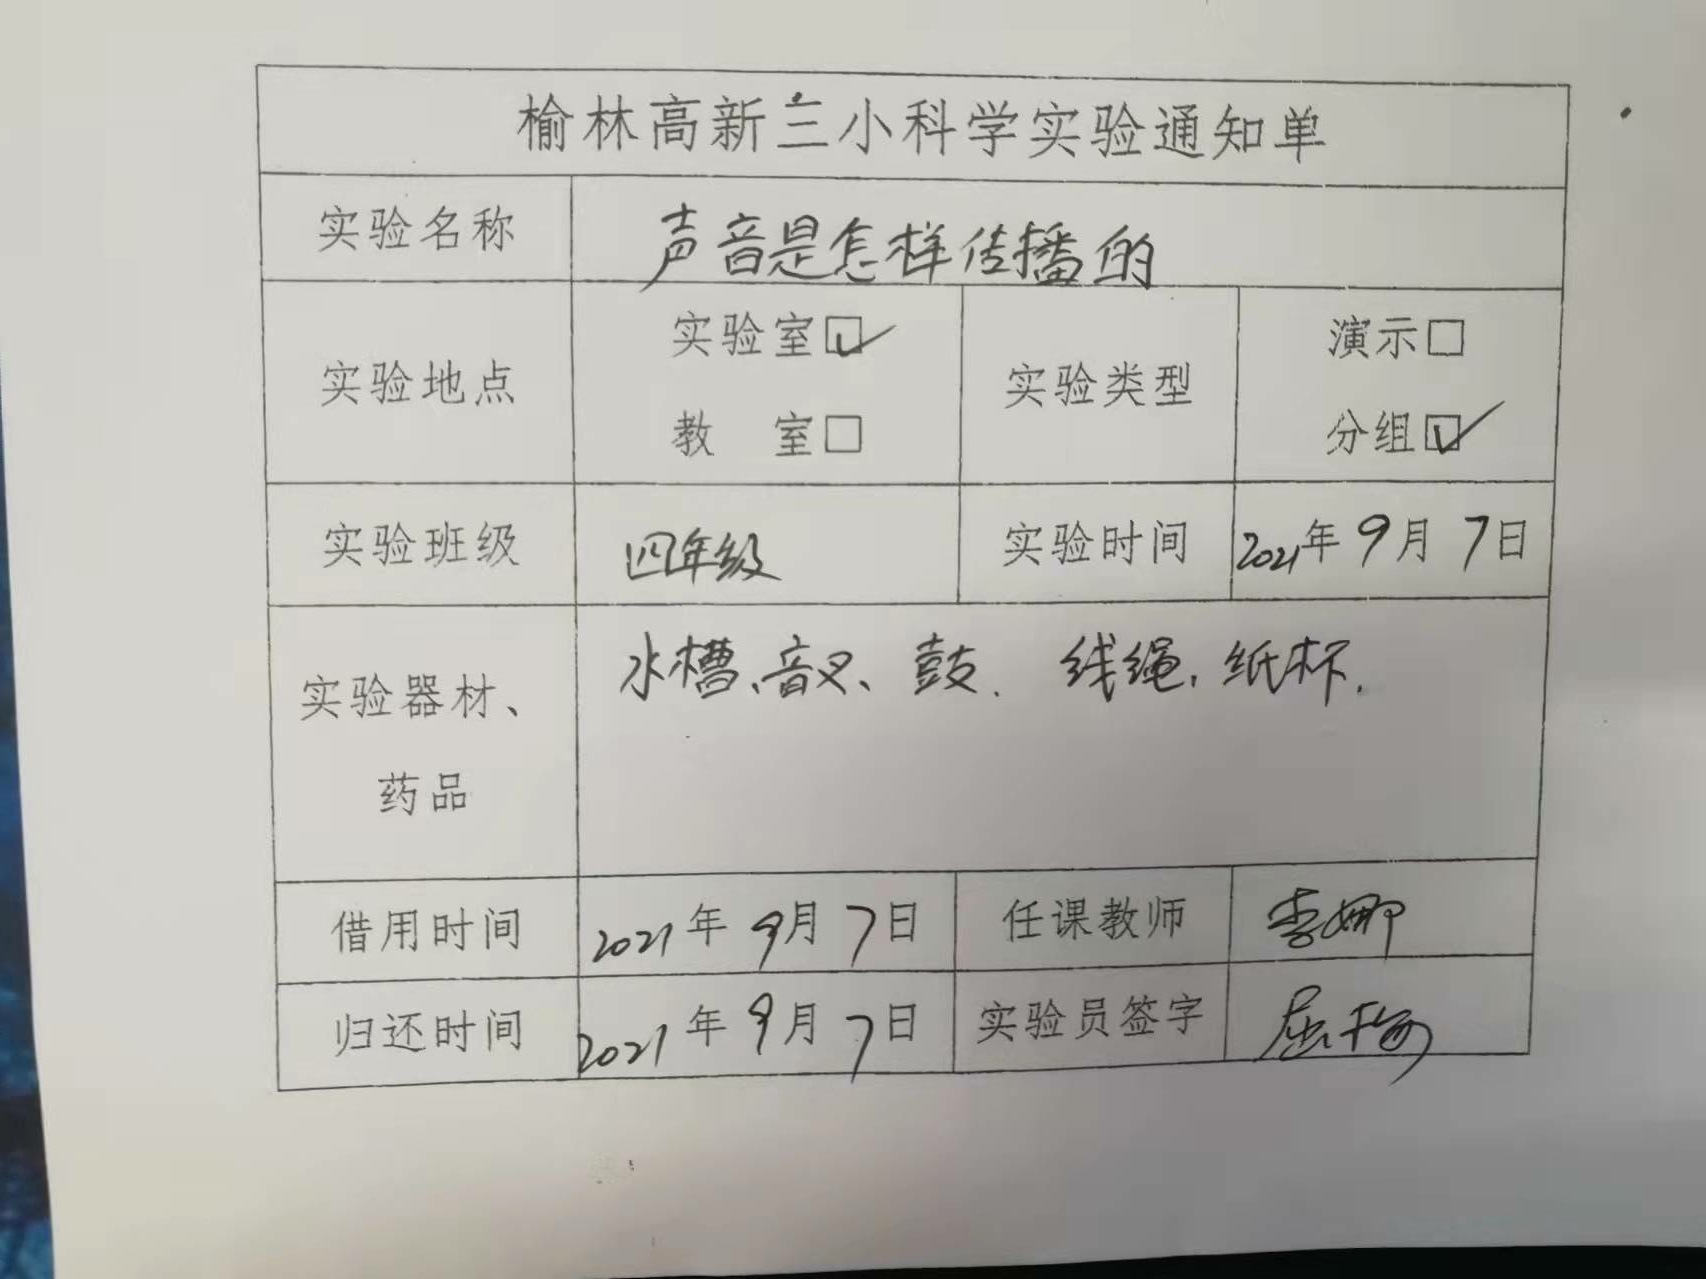 榆林高新三小科学实验通知单
实验名称 声音是怎样传播的
实验地点 实验室☑ 教 室□ 实验类型 演示□ 分组☑
实验班级 四年级 实验时间 2021年9月7日
实验器材、药品 水槽、音叉、鼓、线绳,纸杯.
借用时间 2021年9月7日 任课教师 李娜
归还时间 2021年9月7日 实验员签字 屈